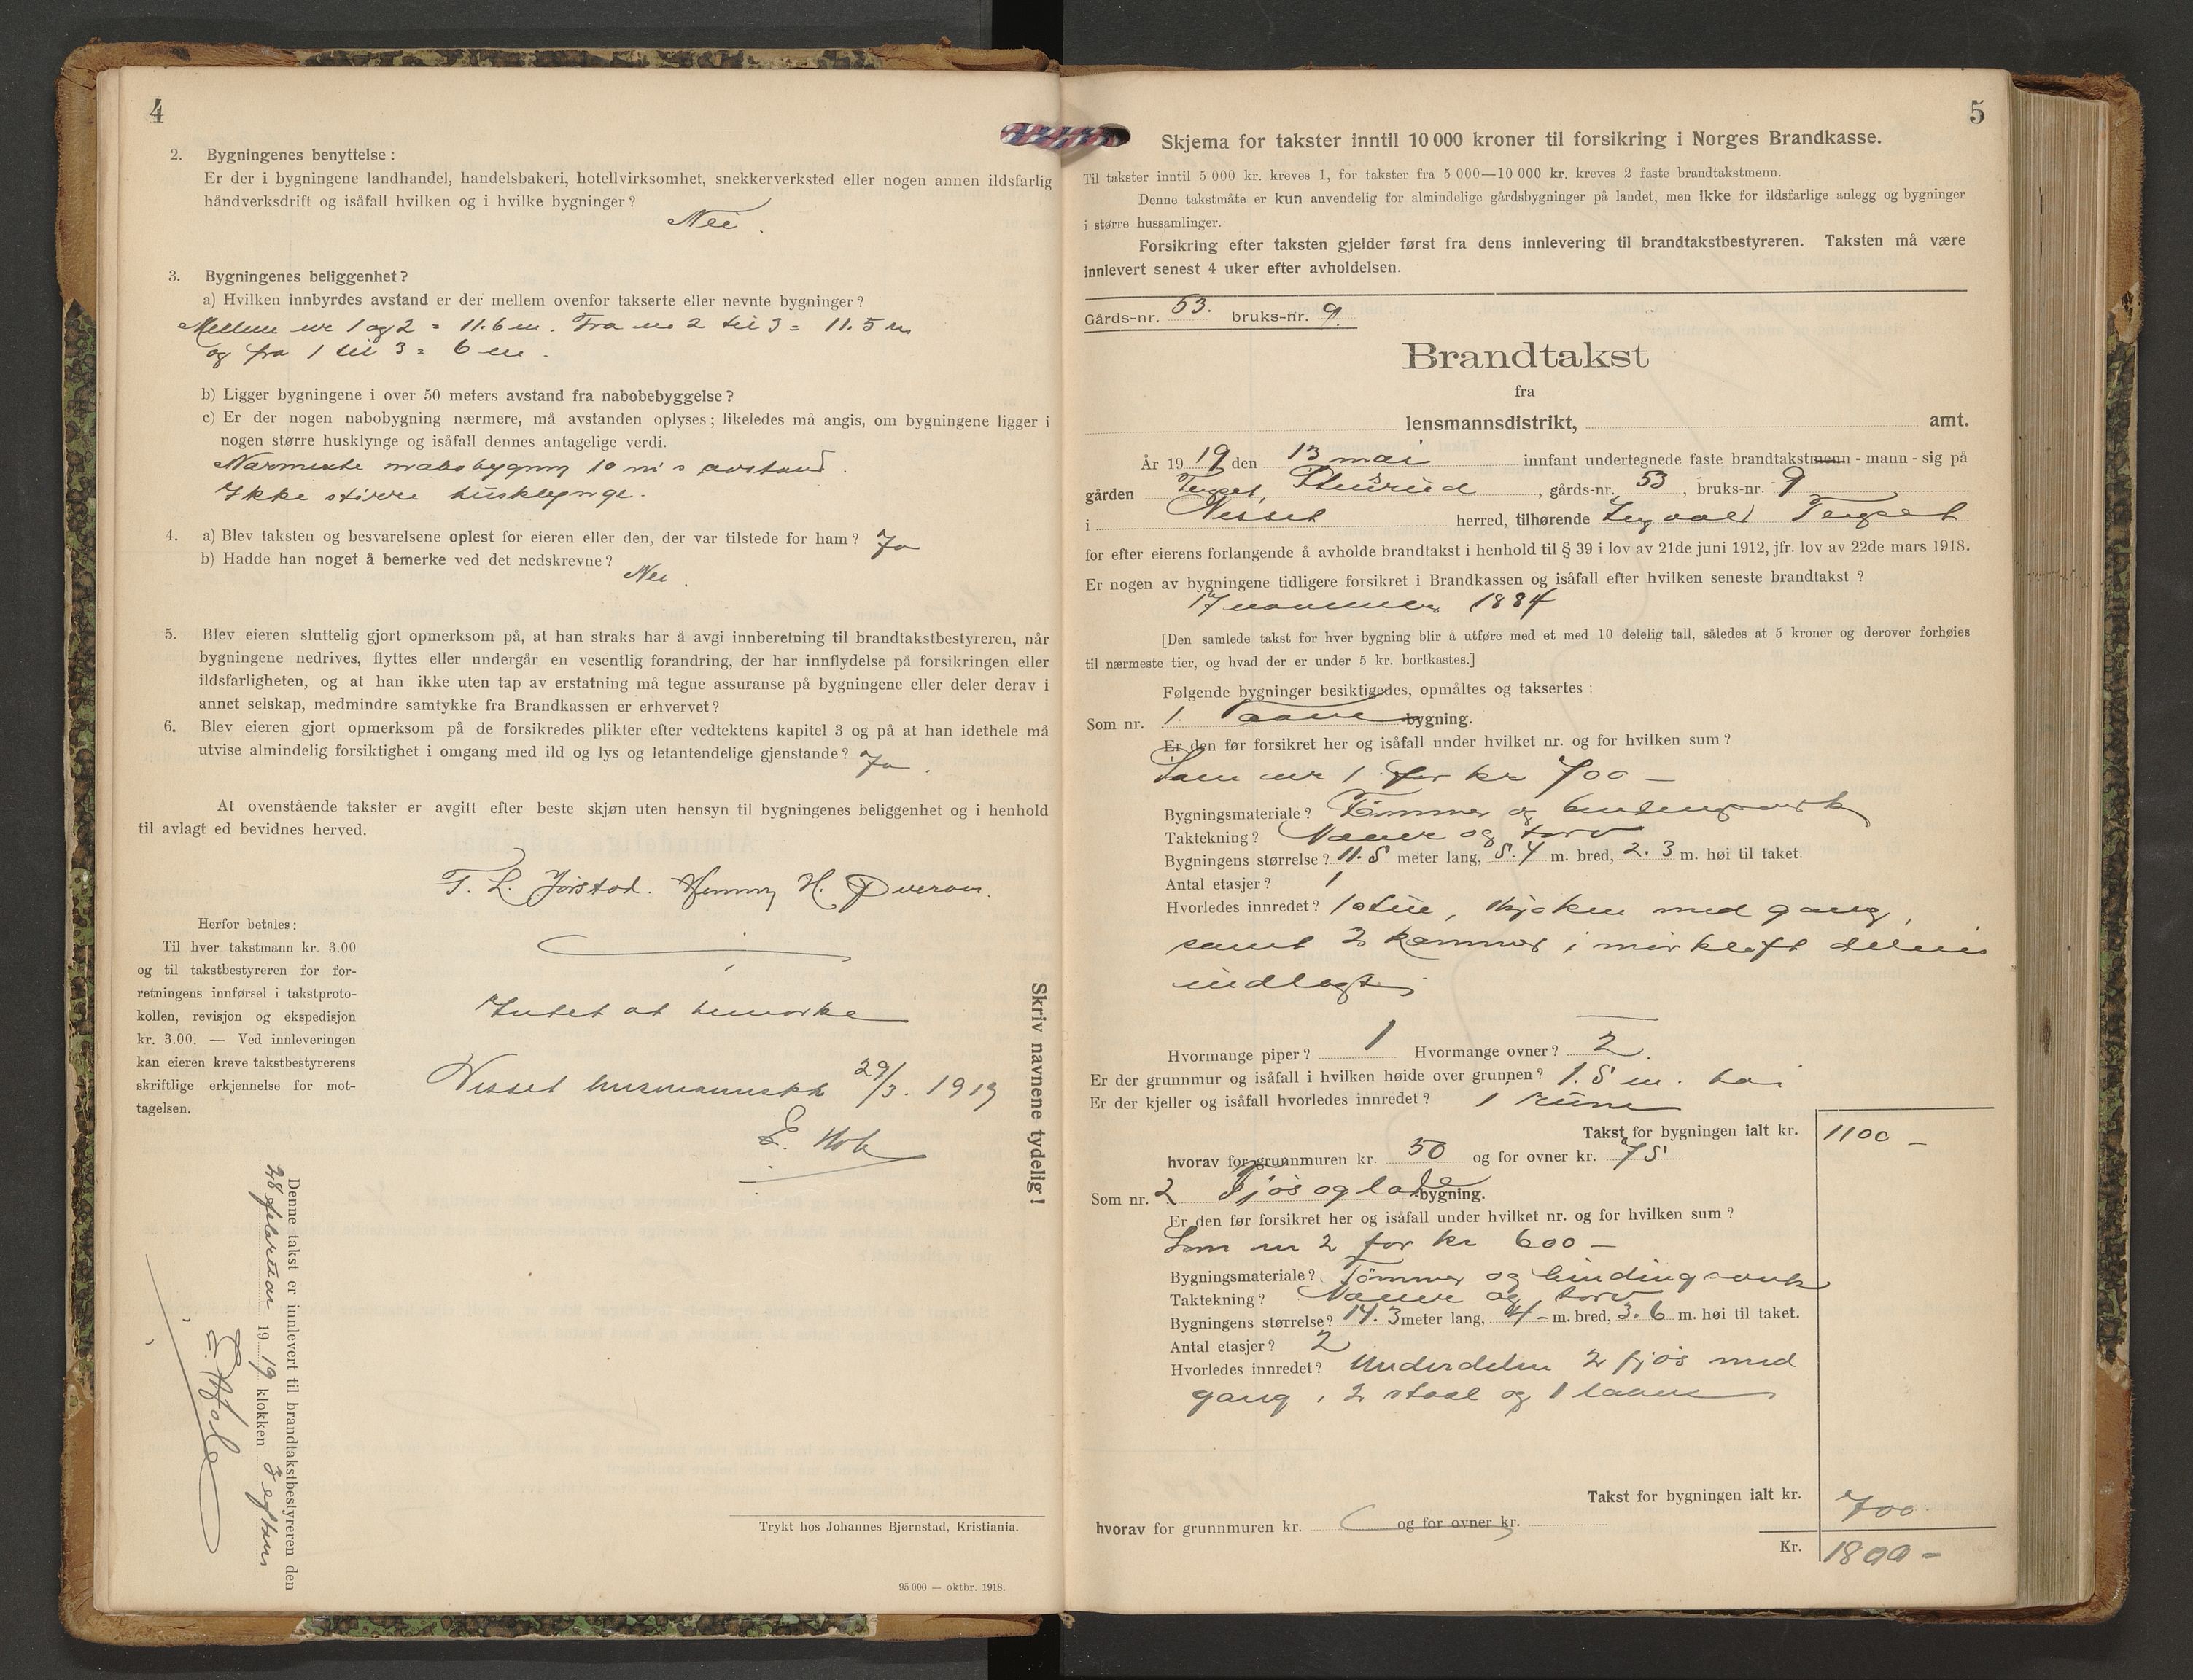 4
2. Bygningenes benyttelse:
Er der i bygningene landhandel, handelsbakeri, hotellvirksomhet, snekkerverksted eller nogen annen ildsfarlig
håndverksdrift og isåfall hvilken og i hvilke bygninger?
Nei.
3. Bygningenes beliggenhet?
a) Hvilken innbyrdes avstand er der mellem ovenfor takserte eller nevnte bygninger?
Mellem nr 1 og 2 = 11.6 m. Fra nr 2 til 3 = 11.5 m
og fra 1 til 3 = 6 m.
b) Ligger bygningene i over 50 meters avstand fra nabobebyggelse?
c) Er der nogen nabobygning nærmere, må avstanden oplyses; likeledes må angis, om bygningene ligger i
nogen større husklynge og isåfall dennes antagelige verdi.
Nærmeste nabobygning 10 m's avstand.
Ikke større husklynge.
4. a) Blev taksten og besvarelsene oplest for eieren eller den, der var tilstede for ham? Ja
b) Hadde han noget å bemerke ved det nedskrevne?
Nei.
5. Blev eieren sluttelig gjort opmerksom på, at han straks har å avgi innberetning til brandtakstbestyreren, når
bygningene nedrives, flyttes eller undergår en vesentlig forandring, der har innflydelse på forsikringen eller
ildsfarligheten, og at han ikke uten tap av erstatning må tegne assuranse på bygningene eller deler derav i
annet selskap, medmindre samtykke fra Brandkassen er erhvervet?
6. Blev eieren gjort opmerksom på de forsikredes plikter efter vedtektens kapitel 3 og på at han idethele må
utvise almindelig forsiktighet i omgang med ild og lys og letantendelige gjenstande? Ja.
At ovenstående takster er avgitt efter beste skjøn uten hensyn til bygningenes beliggenhet og i henhold
til avlagt ed bevidnes herved.
T. L. Jørstad. H. Øveraas.
Herfor betales:
Til hver takstmann kr. 3.00
og til takstbestyreren for for-
retningens innførsel i takstproto-
kollen, revisjon og ekspedisjon
kr. 3.00. — Ved innleveringen
kan eieren kreve takstbestyrerens
skriftlige erkjennelse for mot-
tagelsen.
Intet at bemerke
29/3. 1919
E.
Skriv navnene tydelig!
Denne takst er innlevert til brandtakstbestyreren den
28 februar 1919 klokken 3 efterm
E.
Trykt hos Johannes Bjørnstad, Kristiania.
95 000 — oktbr. 1918.
5
Skjema for takster inntil 10 000 kroner til forsikring i Norges Brandkasse.
Til takster inntil 5 000 kr. kreves 1, for takster fra 5 000—10 000 kr. kreves 2 faste brandtakstmenn.
Denne takstmåte er kun anvendelig for almindelige gårdsbygninger på landet, men ikke for ildsfarlige anlegg og bygninger
i større hussamlinger.
Forsikring efter taksten gjelder først fra dens innlevering til brandtakstbestyreren. Taksten må være
innlevert senest 4 uker efter avholdelsen.
Gårds-nr. 53. bruks-nr. 9.
Brandtakst
fra
lensmannsdistrikt, amt.
År 1919 den 13 mai innfant undertegnede faste brandtakstmenn - mann - sig på
gården , gårds-nr. 53, bruks-nr. 9
i Nesset herred, tilhørende Ingvald Tergset
for efter eierens forlangende å avholde brandtakst i henhold til § 39 i lov av 21de juni 1912, jfr. lov av 22de mars 1918.
Er nogen av bygningene tidligere forsikret i Brandkassen og isåfall efter hvilken seneste brandtakst?
17 november 1884
[Den samlede takst for hver bygning blir å utføre med et med 10 delelig tall, således at 5 kroner og derover forhøies
til nærmeste tier, og hvad der er under 5 kr. bortkastes.]
Følgende bygninger besiktigedes, opmåltes og taksertes:
Som nr. 1. Vaane bygning.
Er den før forsikret her og isåfall under hvilket nr. og for hvilken sum?
Som nr 1 for kr 700 —
Bygningsmateriale? Tømmer og bindingsverk
Taktekning? Næver og torv
Bygningens størrelse? 11.5 meter lang, 5.4 m. bred, 2.3 m. høi til taket.
Antal etasjer? 1
Hvorledes innredet? 1 stue, kjøken med gang,
samt 2 kammer i mørkloft delvis
indlagt
Hvormange piper? 1 Hvormange ovner? 2.
Er der grunnmur og isåfall i hvilken høide over grunnen? 1.5 m. høi
Er der kjeller og isåfall hvorledes innredet? 1 rum
Takst for bygningen ialt kr. 1100 —
hvorav for grunnmuren kr. 50 og for ovner kr. 75
Som nr. 2 Fjøs og lade bygning.
Er den før forsikret her og isåfall under hvilket nr. og for hvilken sum?
Som nr 2 for kr 600 —
Bygningsmateriale? Tømmer og bindingsverk
Taktekning? Næver og torv
Bygningens størrelse? 14.3 meter lang, 4 — m. bred, 3.6 m. høi til taket.
Antal etasjer? 2
Hvorledes innredet? Underdelen 2 fjøs med
gang, 2 staal og 1 laave
Takst for bygningen ialt kr. 700
hvorav for grunnmuren kr. og for ovner kr.
Kr. 1800 —